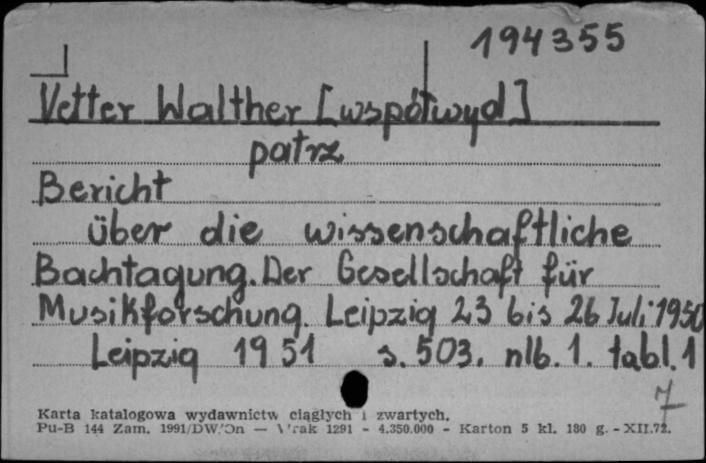 194355
Vetter Walther [współwyd]
patrz
Bericht
über die wissenschaftliche
Bachtagung. Der Gesellschaft für
Musikforschung. Leipzig 23 bis 26 Juli 1950
Leipzig 1951 s. 503. nlb. 1. tabl. 1
7
Karta katalogowa wydawnictw ciągłych i zwartych.
Pu-B 144 Zam. 1991/DW/On — 1291 - 4.350.000 - Karton 5 kl. 180 g. - XII.72.